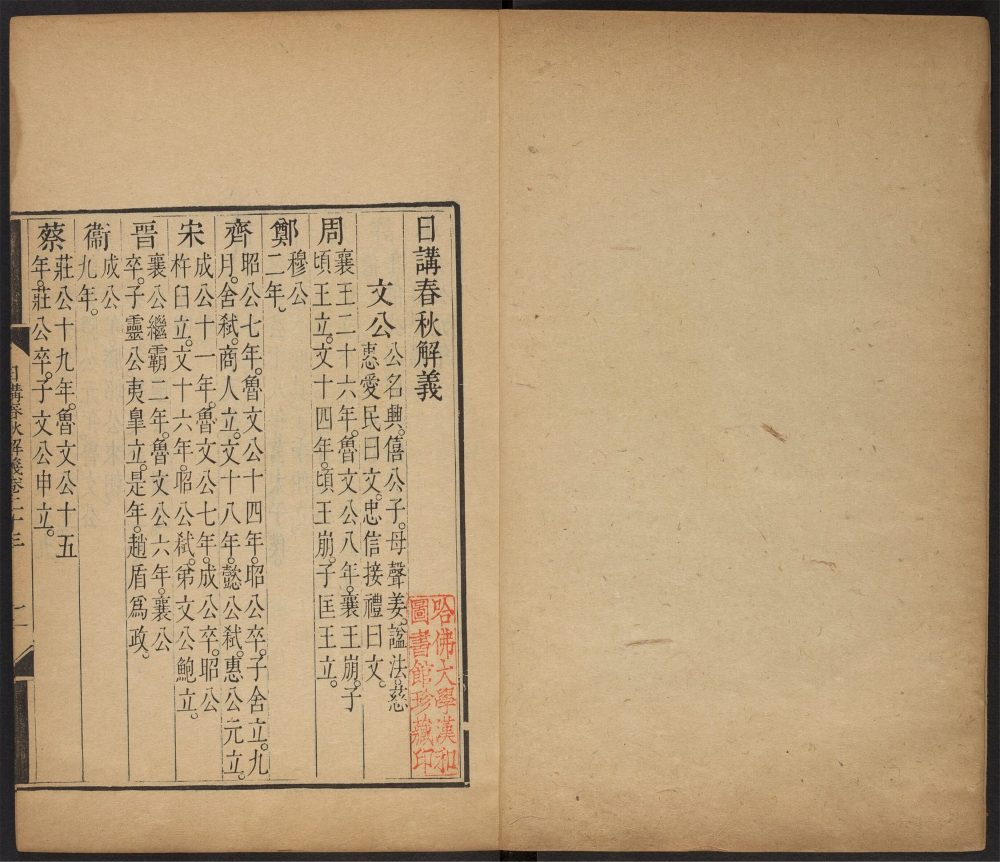 日講春秋解義
文公
公名興。僖公子。母聲姜。謚法。慈
惠愛民曰文。忠信接禮曰文。
周
襄王二十六年。魯文公八年。襄王崩。子
頃王立。文十四年。頃王崩。子匡王立。
鄭
穆公
二年。
齊
昭公七年。魯文公十四年。昭公卒。子舍立。九
月。舍弒。商人立。文十八年。懿公弒。惠公元立。
宋
成公十一年。魯文公七年。成公卒。昭公
杵臼立。文十六年。昭公弒。弟文公鮑立。
晉
襄公繼霸二年。魯文公六年。襄公
卒。子靈公夷臯立。是年。趙盾爲政。
衞
成公
九年。
蔡
莊公十九年。魯文公十五
年。莊公卒。子文公申立。
日講春秋解義卷二十
哈佛大學漢和
圖書館珍藏印